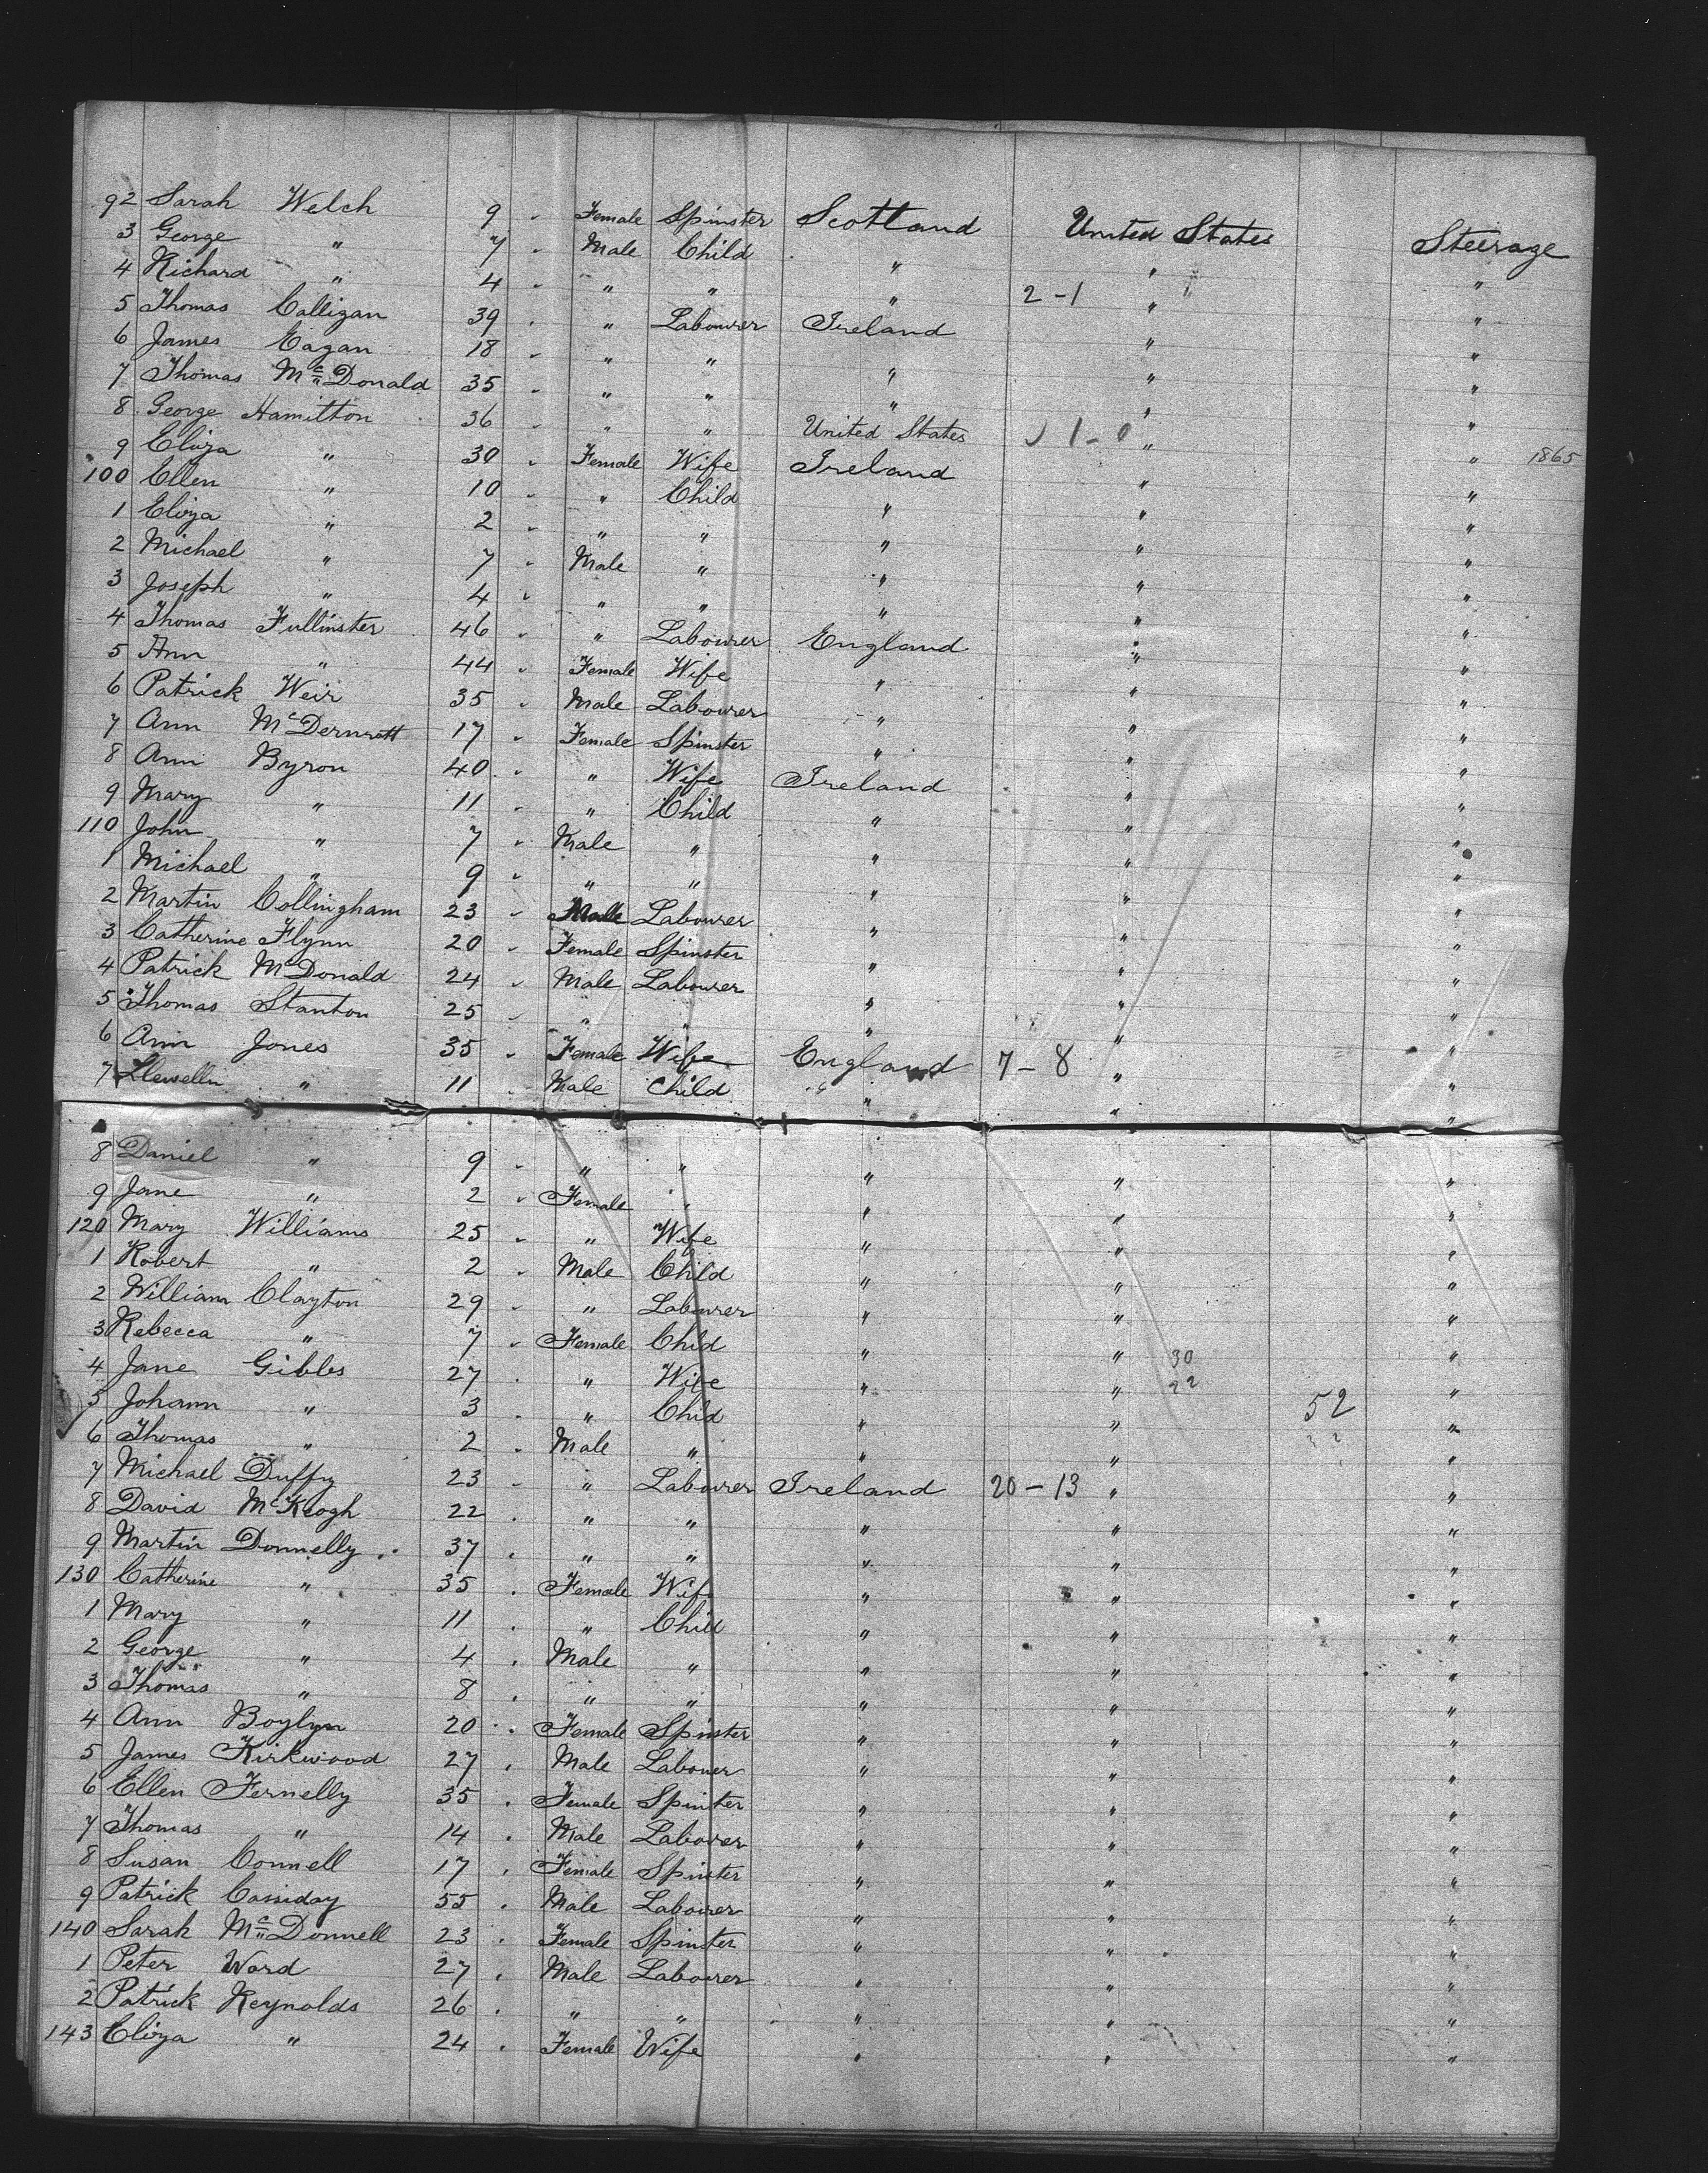 92 Sarah Welch 9 " Female Spinster Scotland United States Steerage
3 George " 7 " Male Child " " "
4 Richard " 4 " " " " 2-1 " "
5 Thomas Calligan 39 " " Labourer Ireland " "
6 James Eagan 18 " " " " " "
7 Thomas McDonald 35 " " " " " "
8 George Hamilton 36 " " " United States 1-0 " "
9 Eliza " 30 " Female Wife Ireland " " 1865
100 Ellen " 10 " " Child " " "
1 Eliza " 2 " " " " " "
2 Michael " 7 " Male " " " "
3 Joseph " 4 " " " " " "
4 Thomas Fullinster 46 " " Labourer England " "
5 Ann " 44 " Female Wife " " "
6 Patrick Weir 35 " Male Labourer " " "
7 Ann McDermott 17 " Female Spinster " " "
8 Ann Byron 40 " " Wife Ireland " "
9 Mary " 11 " " Child " " "
110 John " 7 " Male " " " "
1 Michael " 9 " " " " " "
2 Martin Collingham 23 " Male Labourer " " "
3 Catherine Flynn 20 " Female Spinster " " "
4 Patrick McDonald 24 " Male Labourer " " "
5 Thomas Stanton 25 " " " " " "
6 Ann Jones 35 " Female Wife England 7-8 " "
7 Llewelln " 11 " Male Child " " "
8 Daniel " 9 " " " " " "
9 Jane " 2 " Female " " " "
120 Mary Williams 25 " " Wife " " "
1 Robert " 2 " Male Child " " "
2 William Clayton 29 " " Labourer " " "
3 Rebecca " 7 " Female Child " " "
4 Jane Gibbs 27 " " Wife " " 30 22 "
5 Johann " 3 " " Child " " 52 "
6 Thomas " 2 " Male " " " "
7 Michael Duffy 23 " " Labourer Ireland 20-13 " "
8 David McKeogh 22 " " " " " "
9 Martin Donnelly 37 " " " " " "
130 Catherine " 35 " Female Wife " " "
1 Mary " 11 " " Child " " "
2 George " 4 " Male " " " "
3 Thomas " 8 " " " " " "
4 Ann Boylyn 20 " Female Spinster " " "
5 James Kirkwood 27 " Male Labouer " " "
6 Ellen Fernelly 35 " Female Spinter " " "
7 Thomas " 14 " Male Labourer " " "
8 Susan Connell 17 " Female Spinster " " "
9 Patrick Cassiday 55 " Male Labourer " " "
140 Sarah McDonnell 23 " Female Spinster " " "
1 Peter Ward 27 " Male Labourer " " "
2 Patrick Reynolds 26 " " " " " "
143 Eliza " 24 " Female Wife " " "